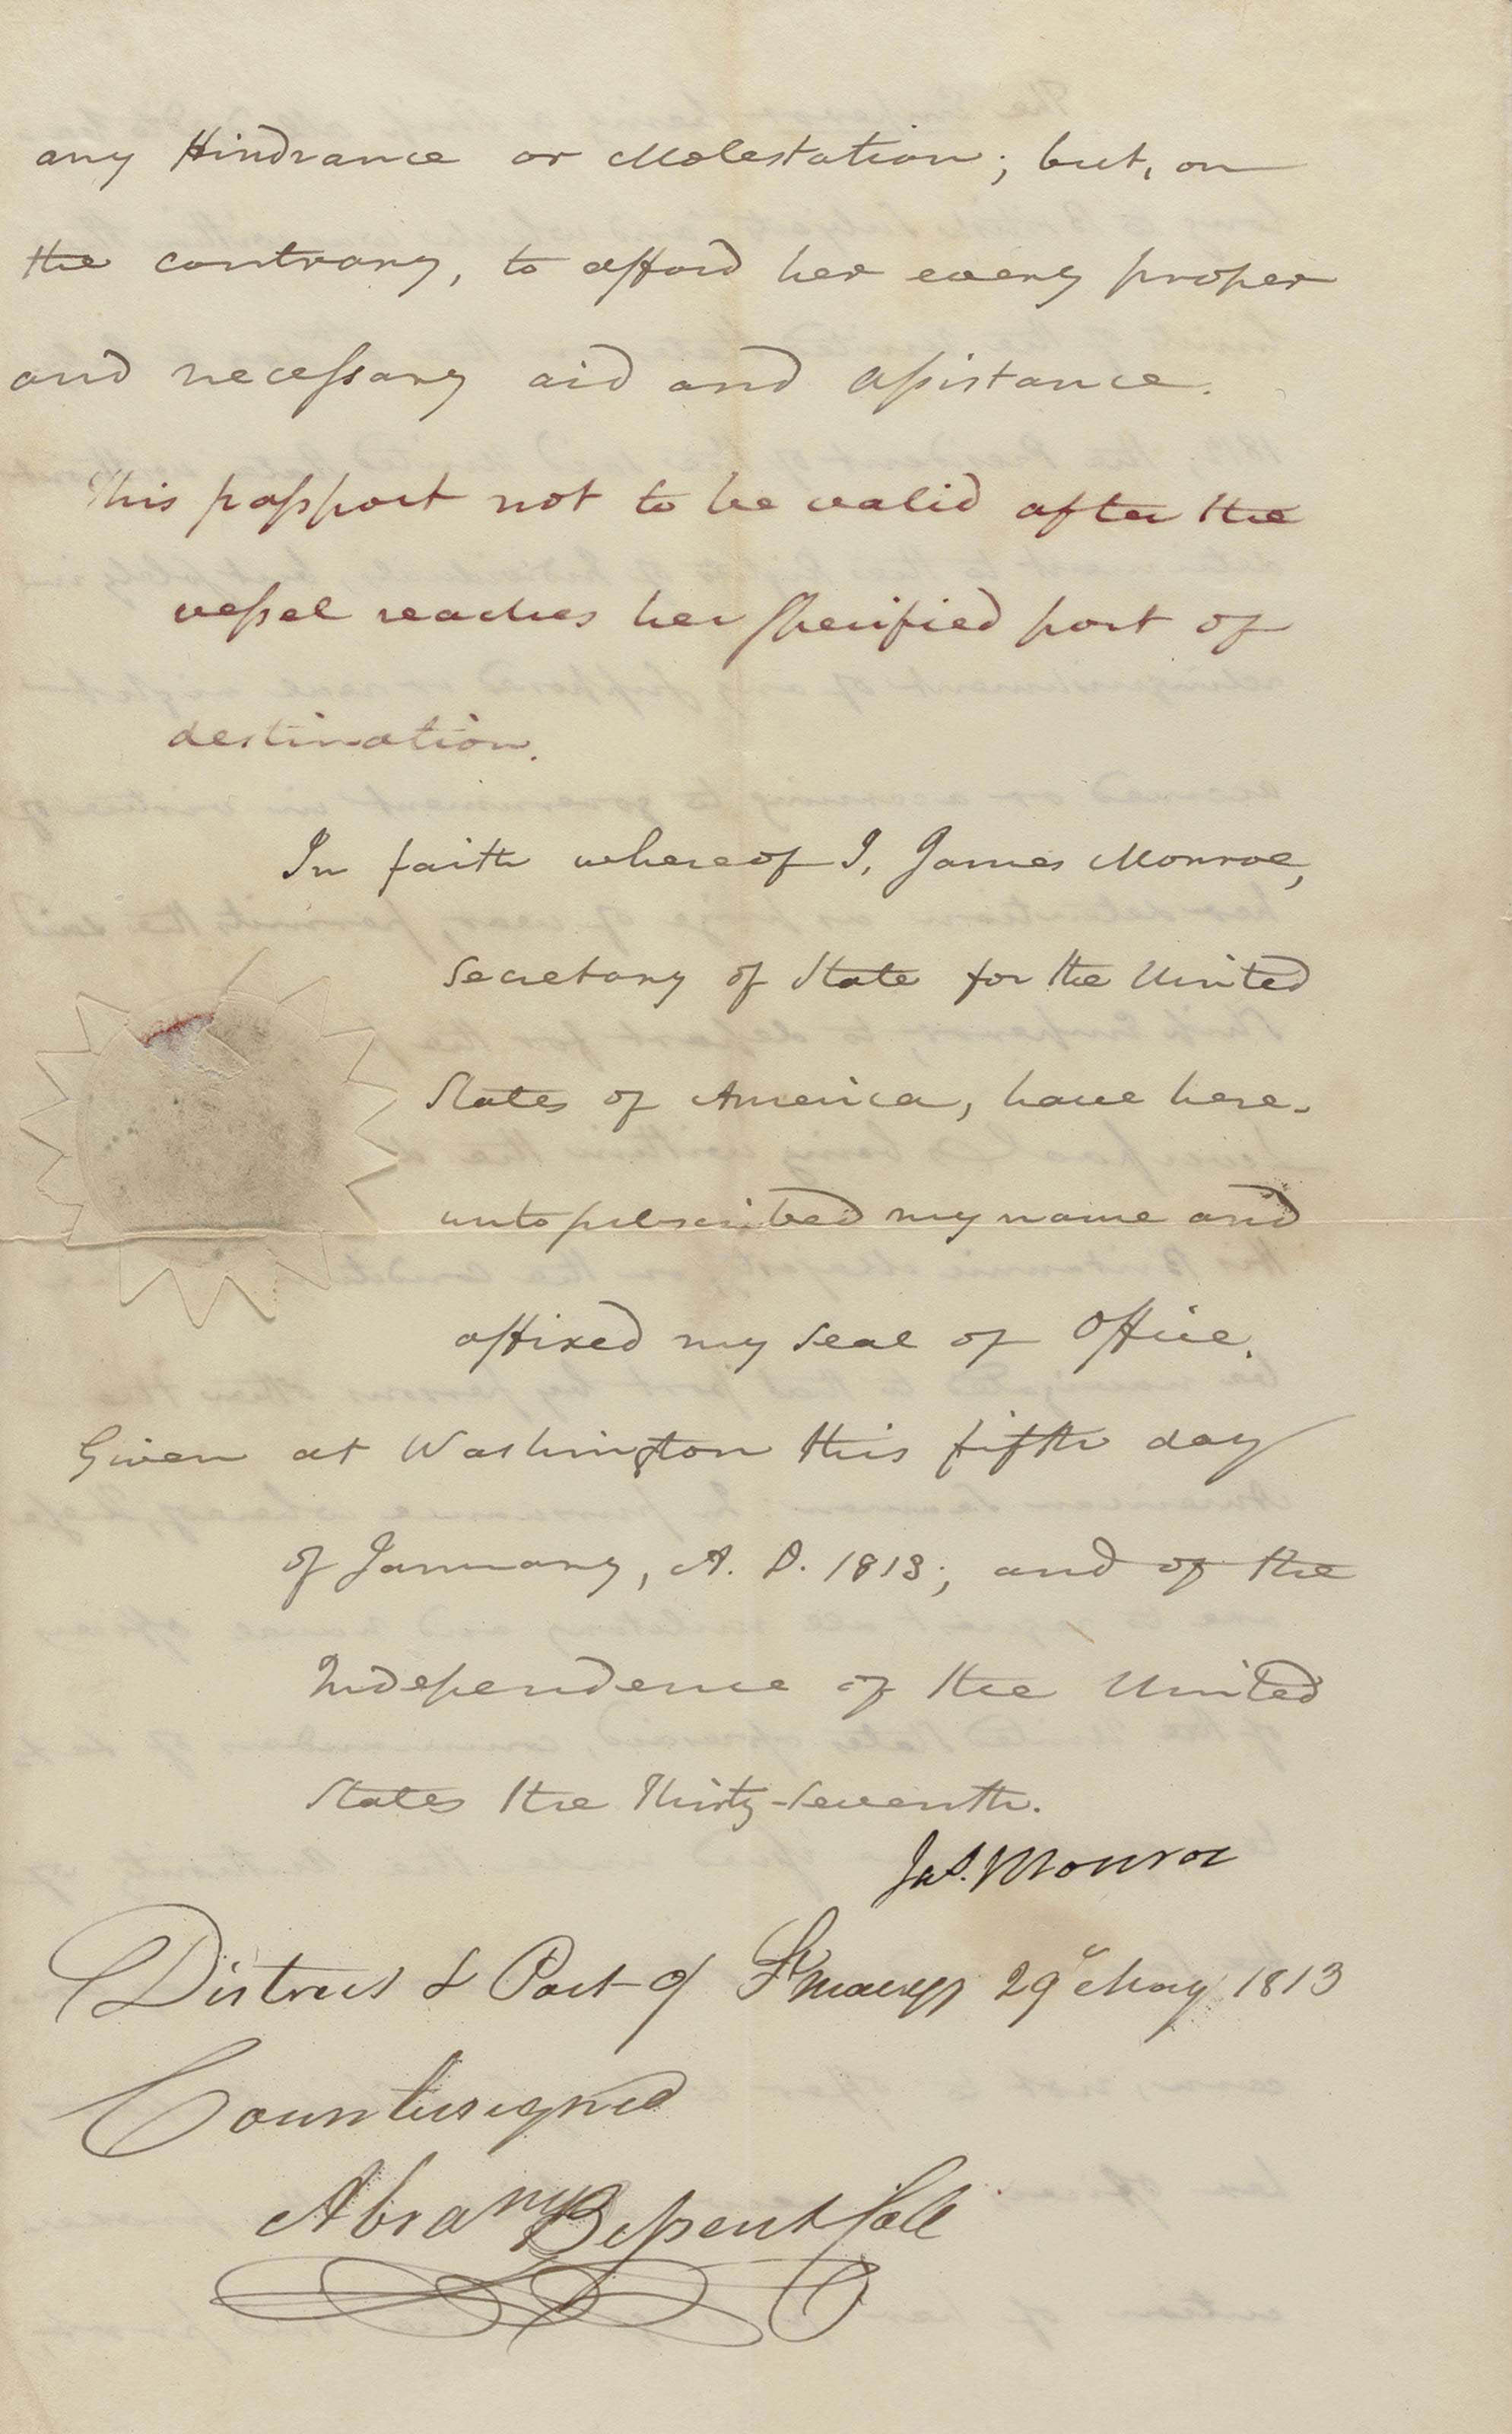 any Hindrance or Molestation; but, on
the contrary, to afford her every proper
and necessary aid and assistance.
This passport not to be valid after the
vessel reaches her specified port of
destination.
In faith whereof I, James Monroe,
Secretary of State for the United
States of America, have here-
unto subscribed my name and
affixed my seal of Office.
Given at Washington this fifth day
of January, A. D. 1813; and of the
Independence of the United
States the Thirty-Seventh.
Jas. Monroe
District & Port of St Marys 29th May 1813
Countersigned
Abram Bessent Coll